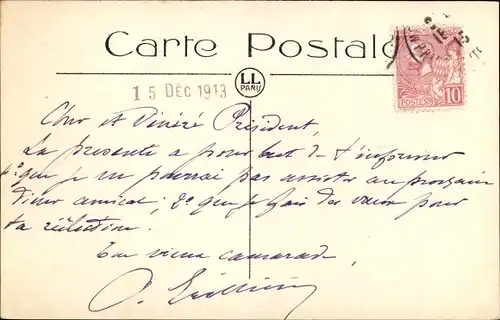 Carte Postale
15 DÉC 1913
LL
PARIS
POSTES 10
Cher et Vénéré Président,
La présente a pour but de t'informer
1º que je ne pourrai pas assister au prochain
diner amical; 2º que je fais des vœux pour
ta réélection.
Ton vieux camarade,